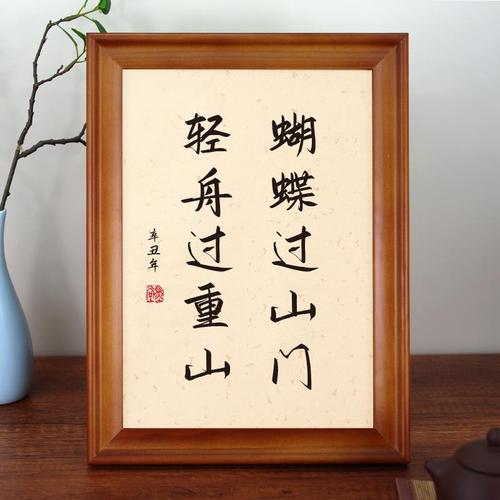 蝴蝶过山门
轻舟过重山
辛丑年